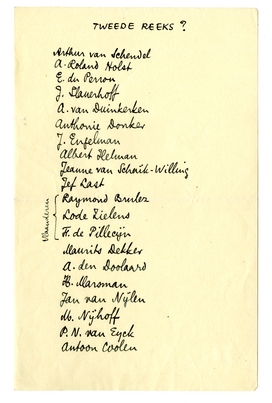 TWEEDE REEKS ?
Arthur van Schendel
A. Roland Holst
E. du Perron
J. Slauerhoff
A. van Duinkerken
Anthonie Donker
J. Engelman
Albert Helman
Jeanne van Schaik-Willing
Jef Last
Vlaanderen
Raymond Brulez
Lode Zielens
F. de Pillecijn
Maurits Dekker
A. den Doolaard
H. Marsman
Jan van Nijlen
M. Nijhoff
P. N. van Eyck
Antoon Coolen